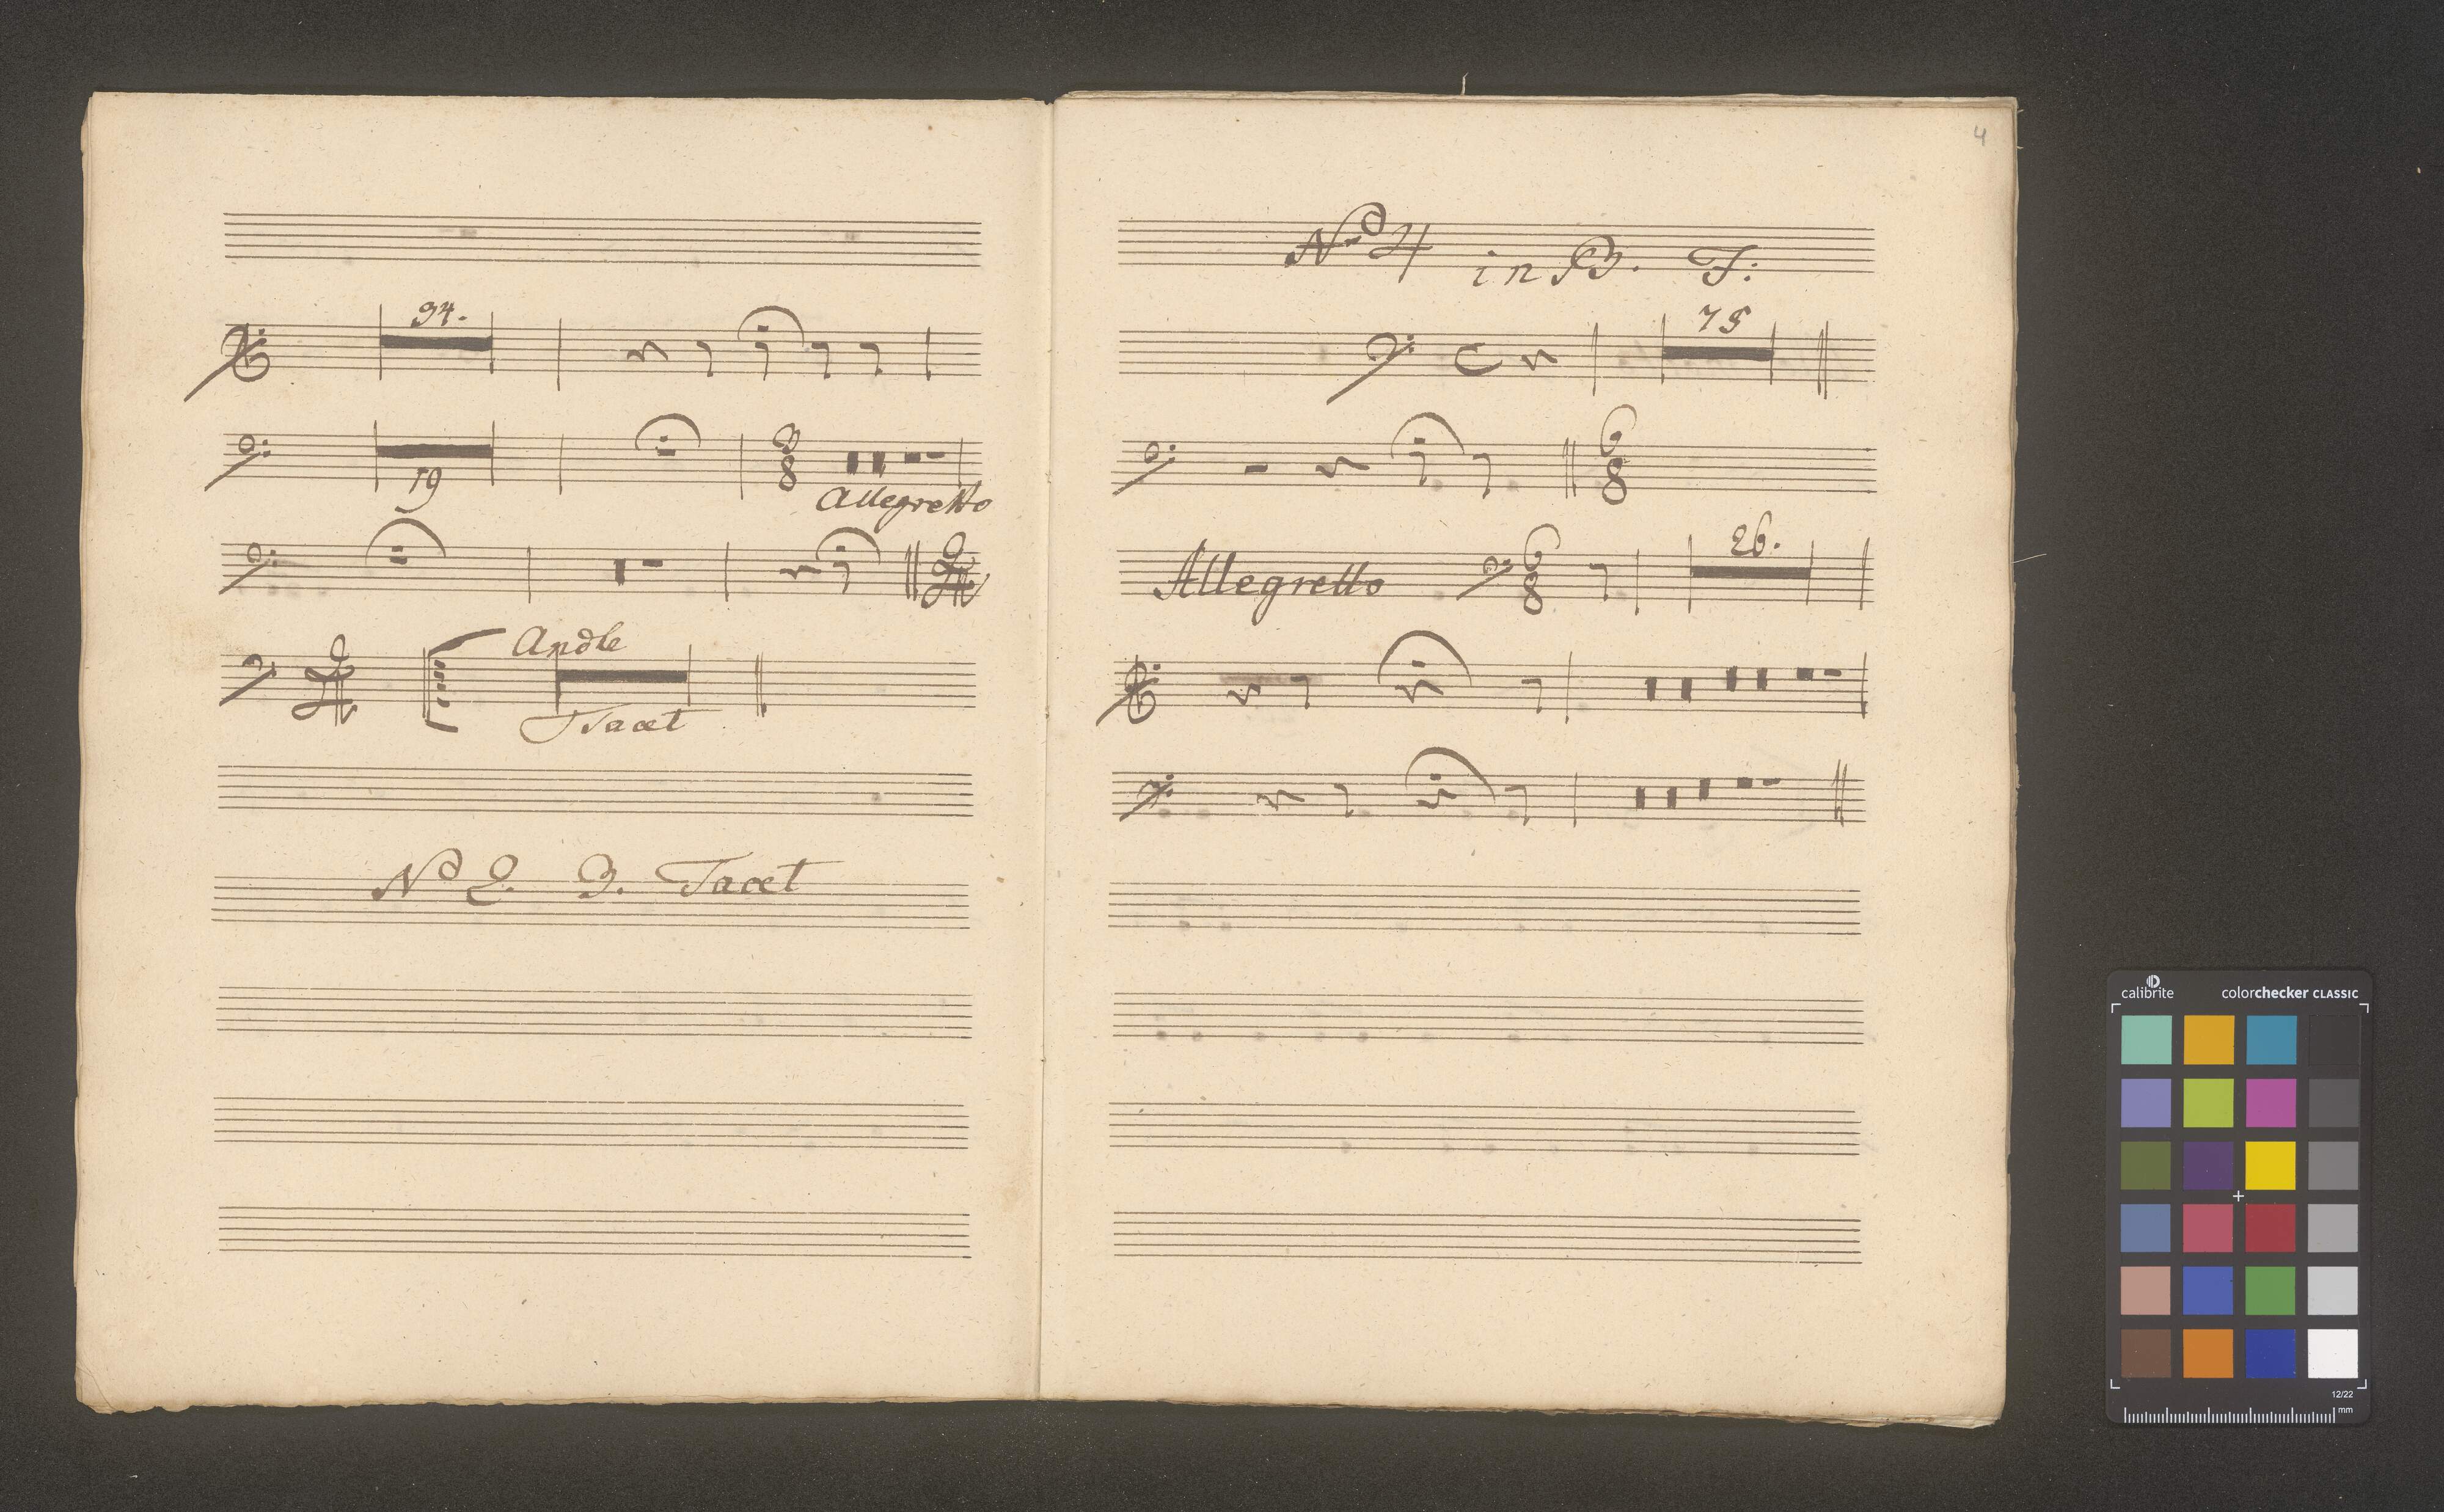 94.
19
8
8
Allegretto
2
Andte
Tacet
No 2. 3. Tacet
4
No 4 in B. F:
75
6
8
Allegretto 6
8
26.
calibrite colorchecker CLASSIC
12/22
mm